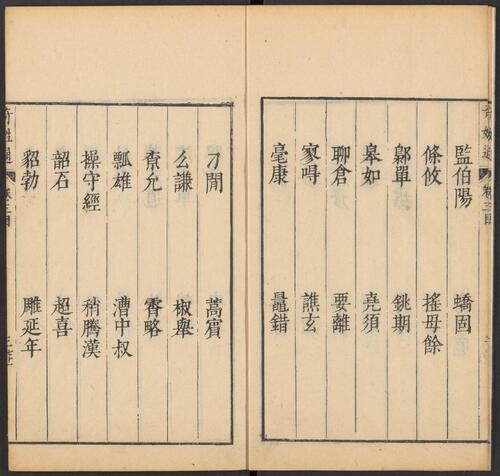 監伯陽 蟜固
條攸 搖毋餘
鄡單 銚期
皋如 堯須
聊倉 要離
寥㝵 譙玄
毫康 鼂錯
刀閒 蒿賓
么謙 椒舉
袞允 霄略
瓢雄 漕中叔
操守經 稍騰漢
韶石 超喜
貂勃 雕延年
奇姓通
卷三目